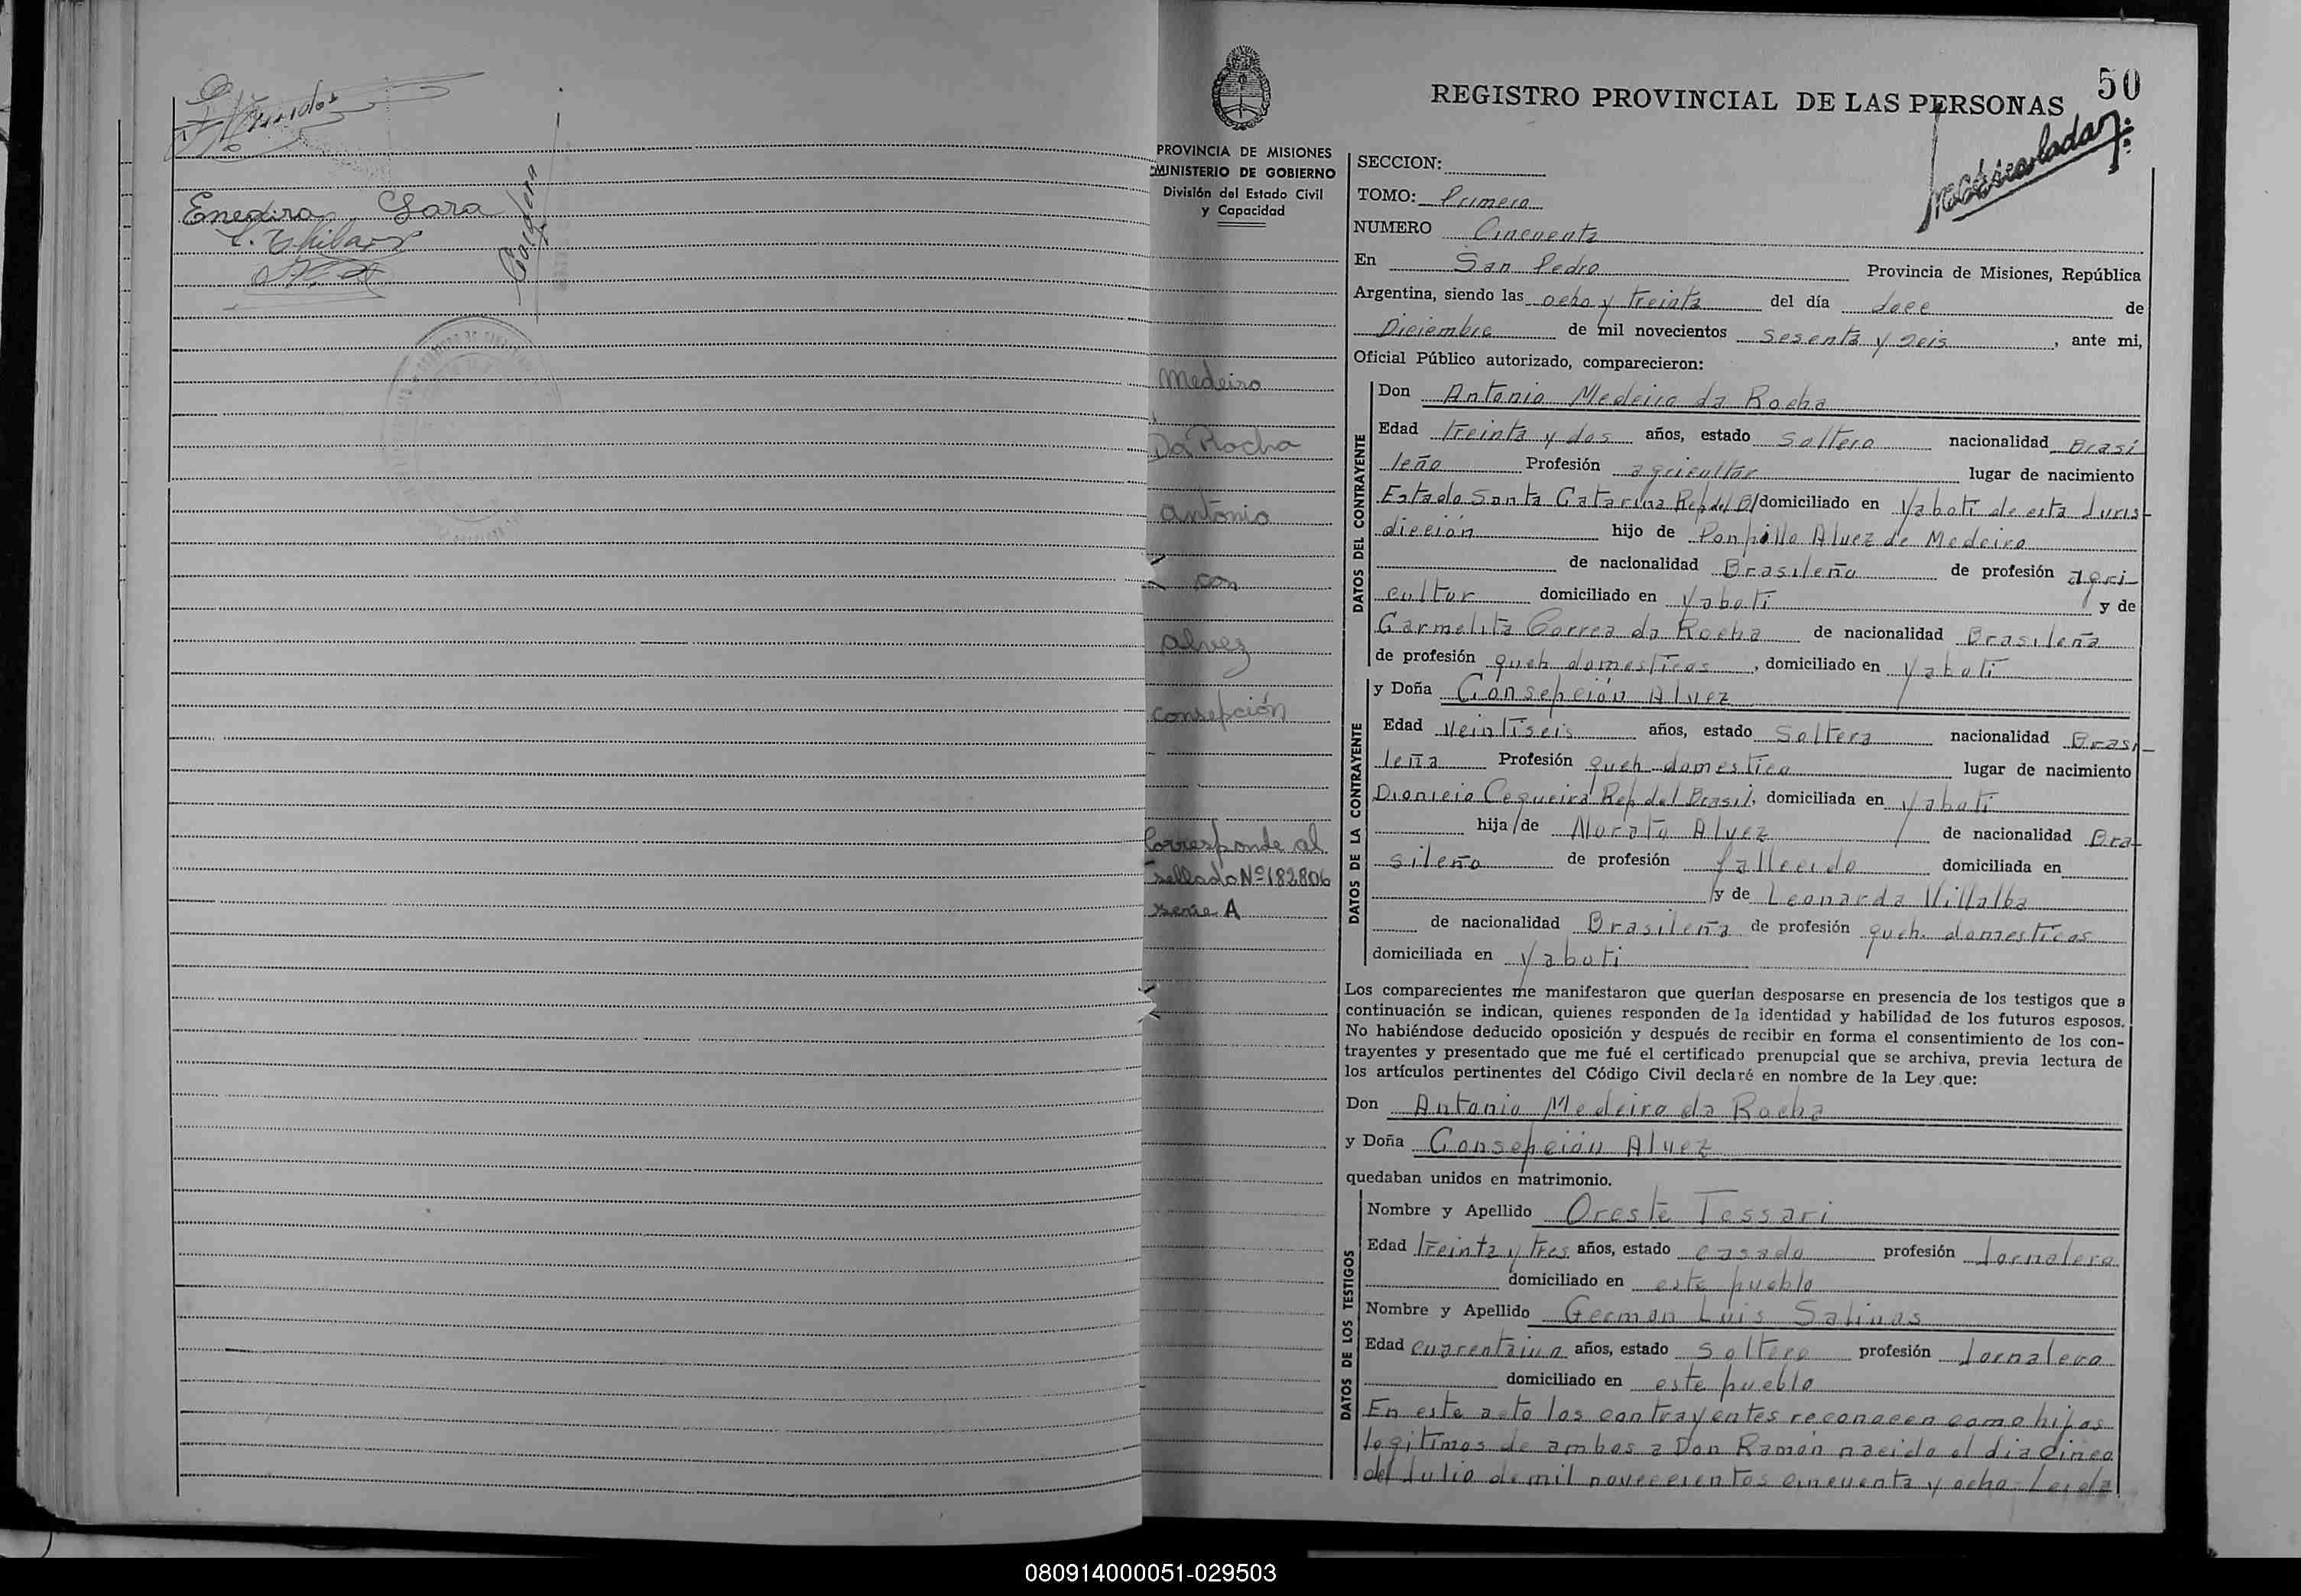 Enedina Sara
50
REGISTRO PROVINCIAL DE LAS PERSONAS
PROVINCIA DE MISIONES
MINISTERIO DE GOBIERNO
División del Estado Civil
y Capacidad
Medeiro
Da Rocha
Antonio
con
Alvez
Consepción
Corresponde al
sellado Nº 182806
serie A
SECCION:
TOMO: Primero
NUMERO Cincuenta
En San Pedro Provincia de Misiones, República
Argentina, siendo las ocho y treinta del día doce de
Diciembre de mil novecientos sesenta y seis, ante mi,
Oficial Público autorizado, comparecieron:
DATOS DEL CONTRAYENTE
Don Antonio Medeiro da Rocha
Edad treinta y dos años, estado soltero nacionalidad Brasi
leño Profesión agricultor lugar de nacimiento
Estado Santa Catarina Rep del B/ domiciliado en Yaboti de esta Juris-
dicción hijo de Ponpilio Alvez de Medeiro
de nacionalidad Brasileño de profesión agri-
cultor domiciliado en Yaboti y de
Carmelita Correa da Rocha de nacionalidad Brasileña
de profesión queh domesticos, domiciliado en Yaboti
DATOS DE LA CONTRAYENTE
y Doña Consepción Alvez
Edad Veintiseis años, estado Soltera nacionalidad Brasi-
leña Profesión queh domestico lugar de nacimiento
Dionicio Cequeira Rep del Brasil, domiciliada en Yaboti
hija de Morato Alvez de nacionalidad Bra-
sileño de profesión fallecido domiciliada en
y de Leonarda Villalba
de nacionalidad Brasileña de profesión queh. domesticos
domiciliada en Yaboti
Los comparecientes me manifestaron que querían desposarse en presencia de los testigos que a
continuación se indican, quienes responden de la identidad y habilidad de los futuros esposos.
No habiéndose deducido oposición y después de recibir en forma el consentimiento de los con-
trayentes y presentado que me fué el certificado prenupcial que se archiva, previa lectura de
los artículos pertinentes del Código Civil declaré en nombre de la Ley que:
Don Antonio Medeiro da Rocha
y Doña Consepción Alvez
quedaban unidos en matrimonio.
DATOS DE LOS TESTIGOS
Nombre y Apellido Oreste Tessari
Edad treinta y tres años, estado casado profesión Jornalero
domiciliado en este pueblo
Nombre y Apellido German Luis Salinas
Edad cuarentaiun años, estado soltero profesión Jornalero
domiciliado en este pueblo
En este acto los contrayentes reconocen como hijos
legitimos de ambos a Don Ramón nacido el dia Cinco
del Julio de mil novecientos cincuenta y ocho Leida
080914000051-029503